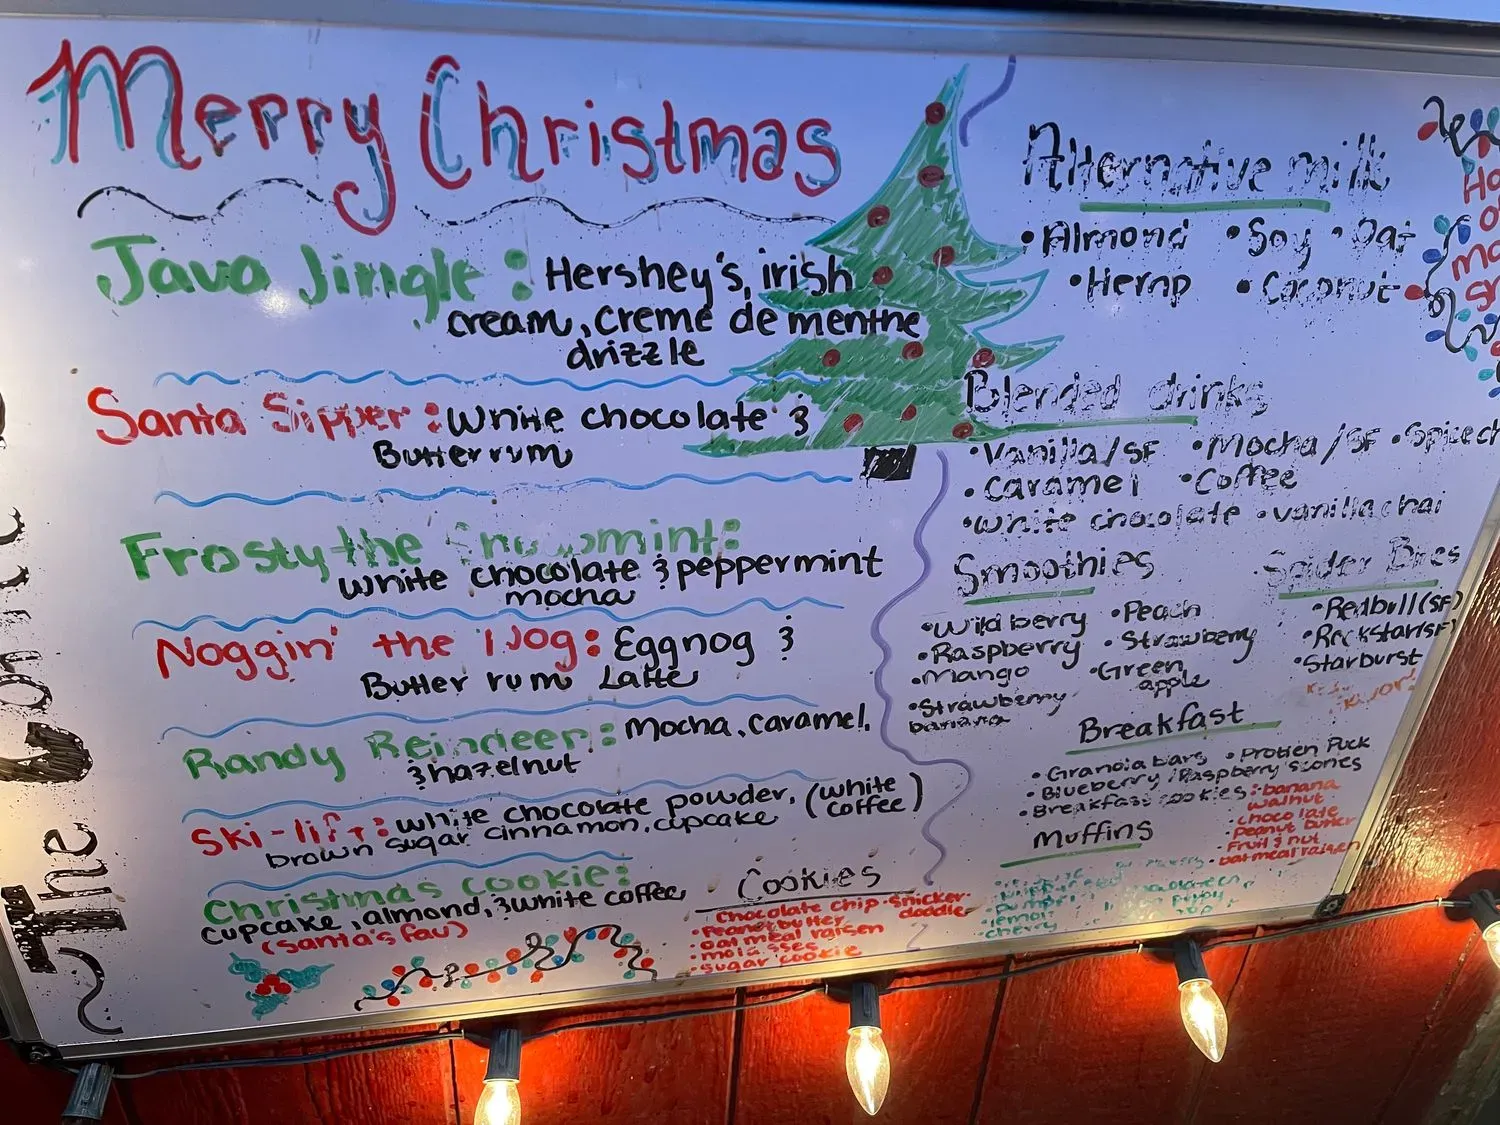 Merry Christmas
Java Jingle: Hershey's, irish
cream, creme de menthe
drizzle
Santa Sipper: White chocolate &
Butter rum
Frosty the Snowmint:
White chocolate & peppermint
mocha
Noggin' the Nog: Eggnog &
Butter rum Latte
Randy Reindeer: Mocha, caramel,
& hazelnut
Ski-lift: white chocolate powder, (white
brown sugar cinnamon, cupcake coffee)
Christmas cookie:
cupcake, almond, & white coffee
(santa's fav)
Cookies
• Chocolate chip • Snicker
• Peanut butter doodle
• oatmeal raisen
• molasses
• sugar cookie
Alternative milk
• Almond • Soy • Oat
• Hemp • Coconut
Blended drinks
• Vanilla/SF • Mocha/SF
• Caramel • Coffee
• White chocolate • vanilla chai
Smoothies
• Wild berry • Peach
• Raspberry • Strawberry
• Mango • Green
apple
• Strawberry
banana
Spider Bres
• Redbull (SF)
• Rockstar (SF)
• Starburst
Breakfast
• Granola bars • Protien Puck
• Blueberry/Raspberry scones
• Breakfast cookies: • banana
walnut
chocolate
peanut butter
Fruit & nut
• oatmeal raisen
Muffins
lemon
cherry
The